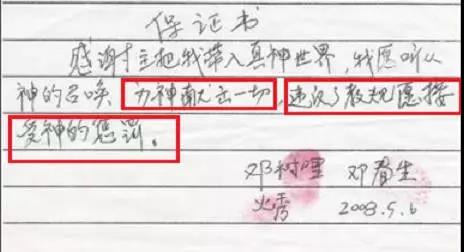 保证书
感谢主把我带入真神世界,我愿听从
神的召唤 为神献出一切,违反了教规愿接
受神的惩罚。
邓树理 邓春生
火秀 2008.5.6